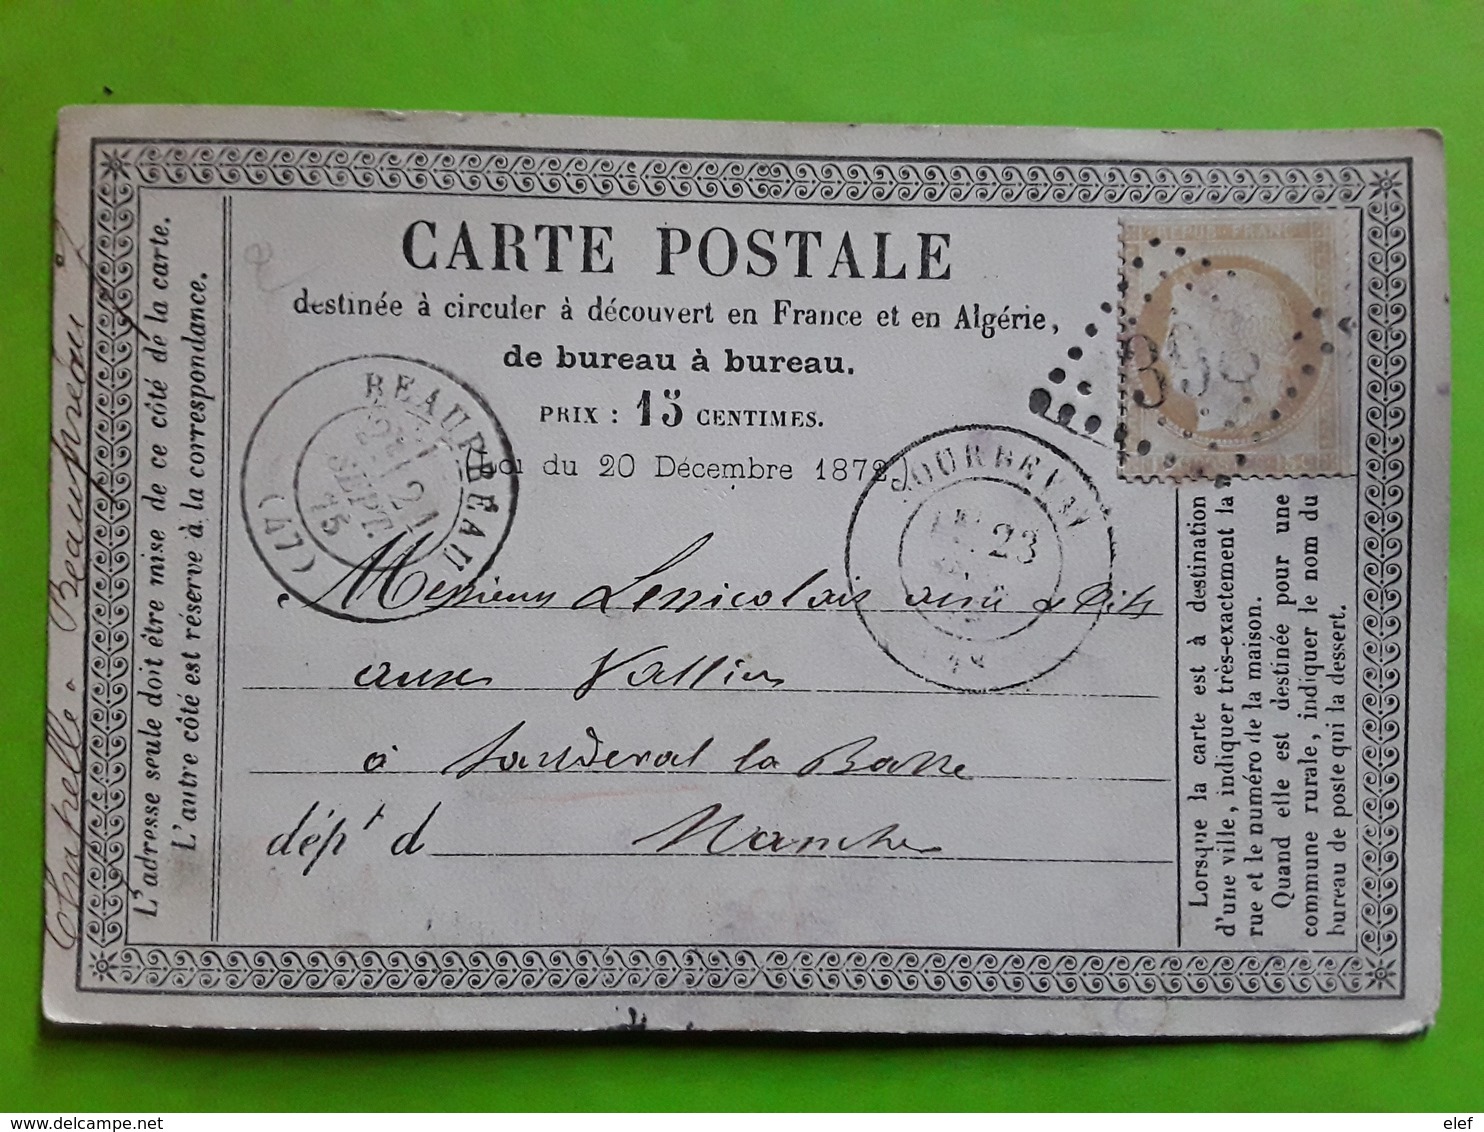 CARTE POSTALE
destinée à circuler à découvert en France et en Algérie,
de bureau à bureau.
PRIX : 15 CENTIMES.
Loi du 20 Décembre 1872
Messieurs Lenicolais aîné & Fils
aux Vallées
à Sourdeval la Barre
dépt d Manche
L'adresse seule doit être mise de ce côté de la carte.
L'autre côté est réservé à la correspondance.
Lorsque la carte est à destination
d'une ville, indiquer très-exactement la
rue et le numéro de la maison.
Quand elle est destinée pour une
commune rurale, indiquer le nom du
bureau de poste qui la dessert.
BEAUPRÉAU
21
SEPT.
75
(47)
23
REPUB FRANC
398
Beaupréau
elef